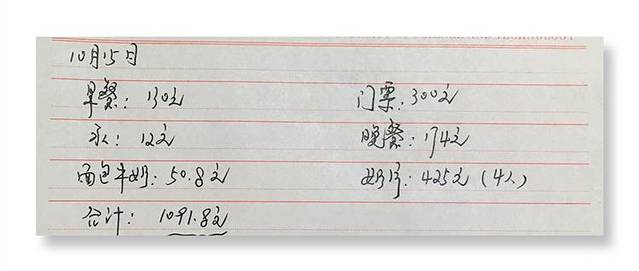 10月15日
早餐：130元 门票：300元
水：12元 晚餐：174元
面包牛奶：50.8元 425元（4人）
合计：1091.8元